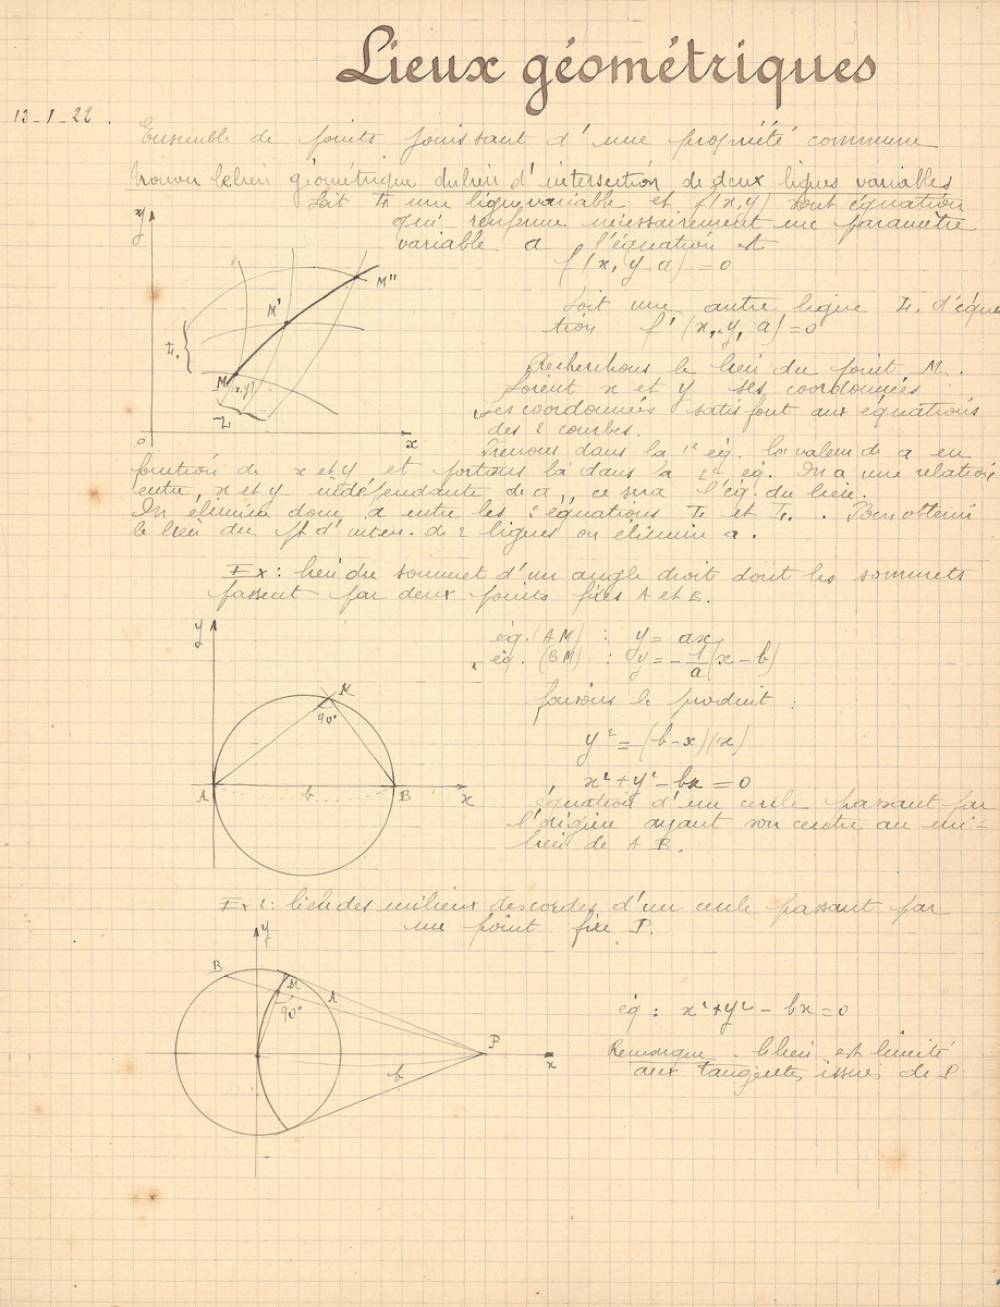 Lieux géométriques
13-1-22.
Ensemble de points jouissant d'une propriété commune
Trouver le lieu géométrique du lieu d'intersection de deux lignes variables
Soit L une ligne variable et f(x,y) sont équation
qui renferme nécessairement une paramètre
variable a l'équation est
f(x, y a) = 0
y
M''
M'
M
(x,y)
L₁
L
o
x
Soit une autre ligne L₁ d'équa
tion f'(x, y, a) = 0
Recherchons le lieu du point M.
Soient x et y ses coordonnées
Ses coordonnées satisfont aux équations
des 2 courbes.
Prenons dans la 1e éq. la valeur de a en
fonction de x et y et portons la dans la 2e éq. On a une relation
entre x et y indépendante de a, ce sera l'éq. du lieu.
On élimine donc a entre les 2 équations L et L₁. Pour obtenir
le lieu du pt d'inters. de 2 lignes on élimine a.
Ex: lieu du sommet d'un angle droit dont les sommets
passent par deux points fixes A et B.
y
M
90°
A
b
B
x
éq. (AM) : y = ax
éq. (BM) : y = -1/a (x - b)
faisons le produit :
y² = (b-x)(x)
x² + y² - bx = 0
équation d'un cercle passant par
l'origine ayant son centre au mi-
lieu de A B.
Ex 2: lieu des milieux des cordes d'un cercle passant par
un point fixe P.
y
B
M
A
90°
P
b
x
éq : x² + y² - bx = 0
Remarque. le lieu est limité
aux tangentes issues de P